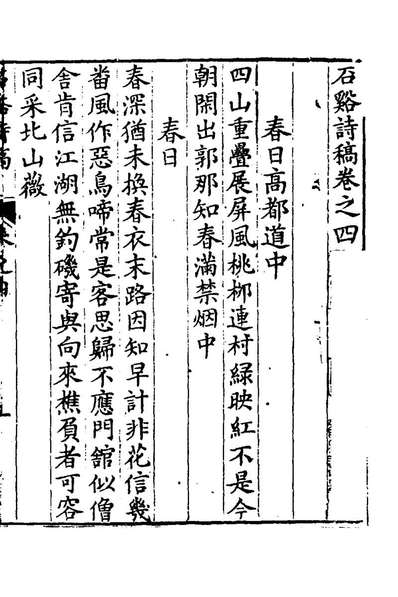 石谿詩稿卷之四
春日高都道中
四山重疊展屏風桃柳連村綠映紅不是今
朝閑出郭那知春滿禁烟中
春日
春深猶未換春衣末路因知早計非花信幾
畨風作惡鳥啼常是客思歸不應門舘似僧
舍肯信江湖無釣磯寄與向來樵負者可容
同采北山薇